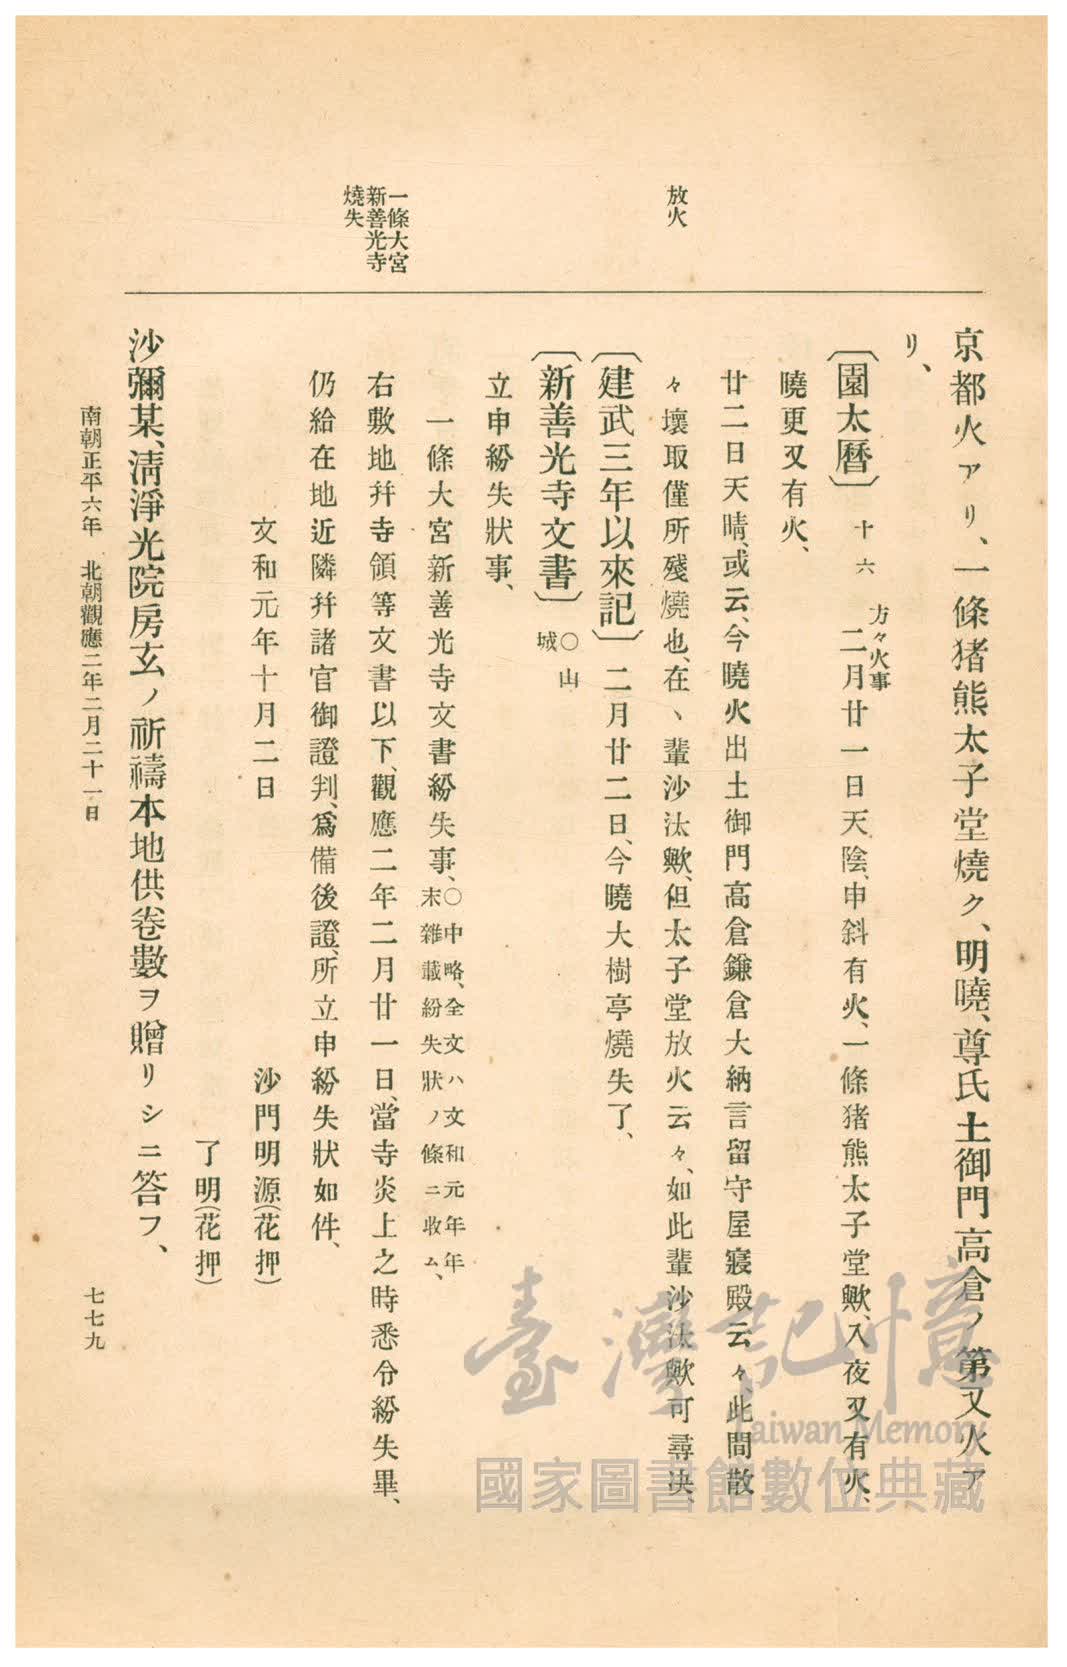 放火
一條大宮
新善光寺
燒失
京都火アリ、一條猪熊太子堂燒ク、明曉、尊氏土御門高倉ノ第又火ア
リ、
〔園太曆〕十六 二月廿一日天陰、申斜有火、一條猪熊太子堂歟、入夜又有火、
方々火事
曉更又有火、
廿二日天晴、或云、今曉火出土御門高倉鎌倉大納言留守屋寢殿云々、此間散
々壞取僅所殘燒也、在〻輩沙汰歟、但太子堂放火云々、如此輩沙汰歟可尋決、
〔建武三年以來記〕二月廿二日、今曉大樹亭燒失了、
〔新善光寺文書〕○山
城
立申紛失狀事、
一條大宮新善光寺文書紛失事、○中略、全文ハ文和元年年
末雜載紛失狀ノ條ニ收ム、
右敷地幷寺領等文書以下、觀應二年二月廿一日、當寺炎上之時悉令紛失畢、
仍給在地近隣幷諸官御證判、爲備後證、所立申紛失狀如件、
文和元年十月二日 沙門明源(花押)
了明(花押)
沙彌某、淸淨光院房玄ノ祈禱本地供卷數ヲ贈リシニ答フ、
南朝正平六年 北朝觀應二年二月二十一日 七七九
臺灣記憶
Taiwan Memory
國家圖書館數位典藏